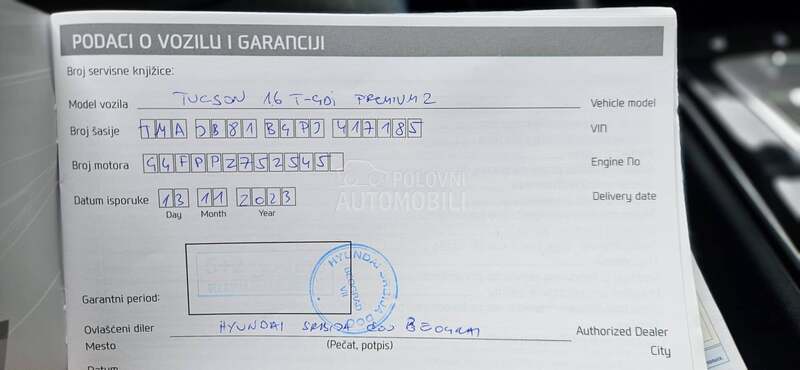 PODACI O VOZILU I GARANCIJI
Broj servisne knjižice:
Model vozila TUCSON 1.6 T-GDi PREMIUM 2 Vehicle model
Broj šasije TMA JB81 BGPJ 417185 VIN
Broj motora G4FPPZ752545 Engine No
POLOVNI
AUTOMOBILI
Datum isporuke 13 11 2023 Delivery date
Day Month Year
HYUNDAI SRBIJA DOO
BEOGRAD
VII
Garantni period:
Ovlašćeni diler HYUNDAI SRBIJA doo BEOGRAD Authorized Dealer
Mesto (Pečat, potpis) City
Datum